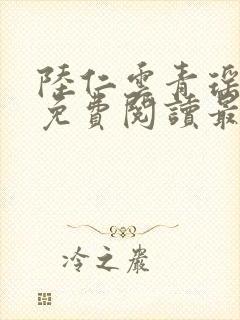 陸仁雲青瑤
免費閱讀最
冷之嚴